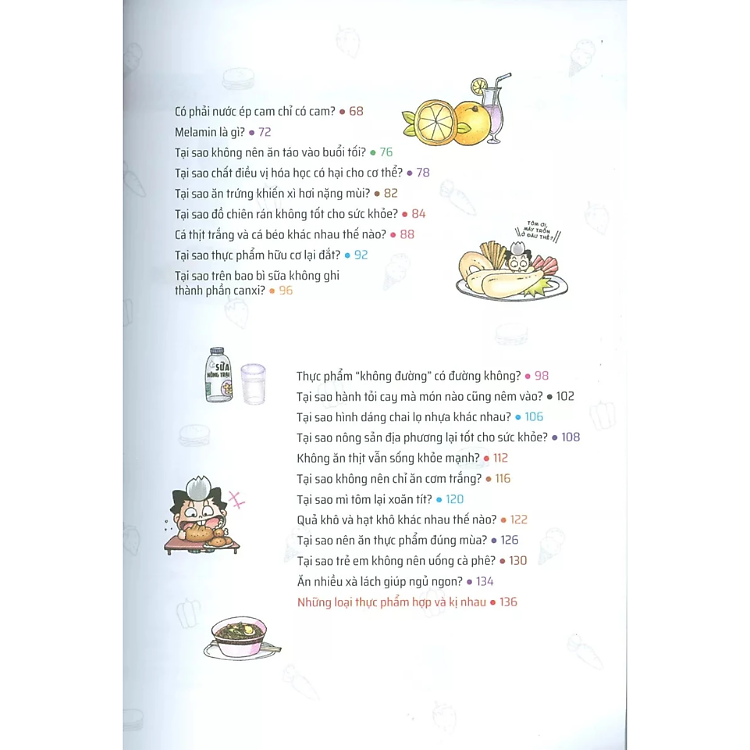 Có phải nước ép cam chỉ có cam? • 68
Melamin là gì? • 72
Tại sao không nên ăn táo vào buổi tối? • 76
Tại sao chất điều vị hóa học có hại cho cơ thể? • 78
Tại sao ăn trứng khiến xì hơi nặng mùi? • 82
Tại sao đồ chiên rán không tốt cho sức khỏe? • 84
Cá thịt trắng và cá béo khác nhau thế nào? • 88
Tại sao thực phẩm hữu cơ lại đắt? • 92
Tại sao trên bao bì sữa không ghi
thành phần canxi? • 96
TÔM ƠI,
MÀY TRỐN
Ở ĐÂU THẾ?
SỮA
Thực phẩm "không đường" có đường không? • 98
Tại sao hành tỏi cay mà món nào cũng nêm vào? • 102
Tại sao hình dáng chai lọ nhựa khác nhau? • 106
Tại sao nông sản địa phương lại tốt cho sức khỏe? • 108
Không ăn thịt vẫn sống khỏe mạnh? • 112
Tại sao không nên chỉ ăn cơm trắng? • 116
Tại sao mì tôm lại xoăn tít? • 120
Quả khô và hạt khô khác nhau thế nào? • 122
Tại sao nên ăn thực phẩm đúng mùa? • 126
Tại sao trẻ em không nên uống cà phê? • 130
Ăn nhiều xà lách giúp ngủ ngon? • 134
Những loại thực phẩm hợp và kị nhau • 136